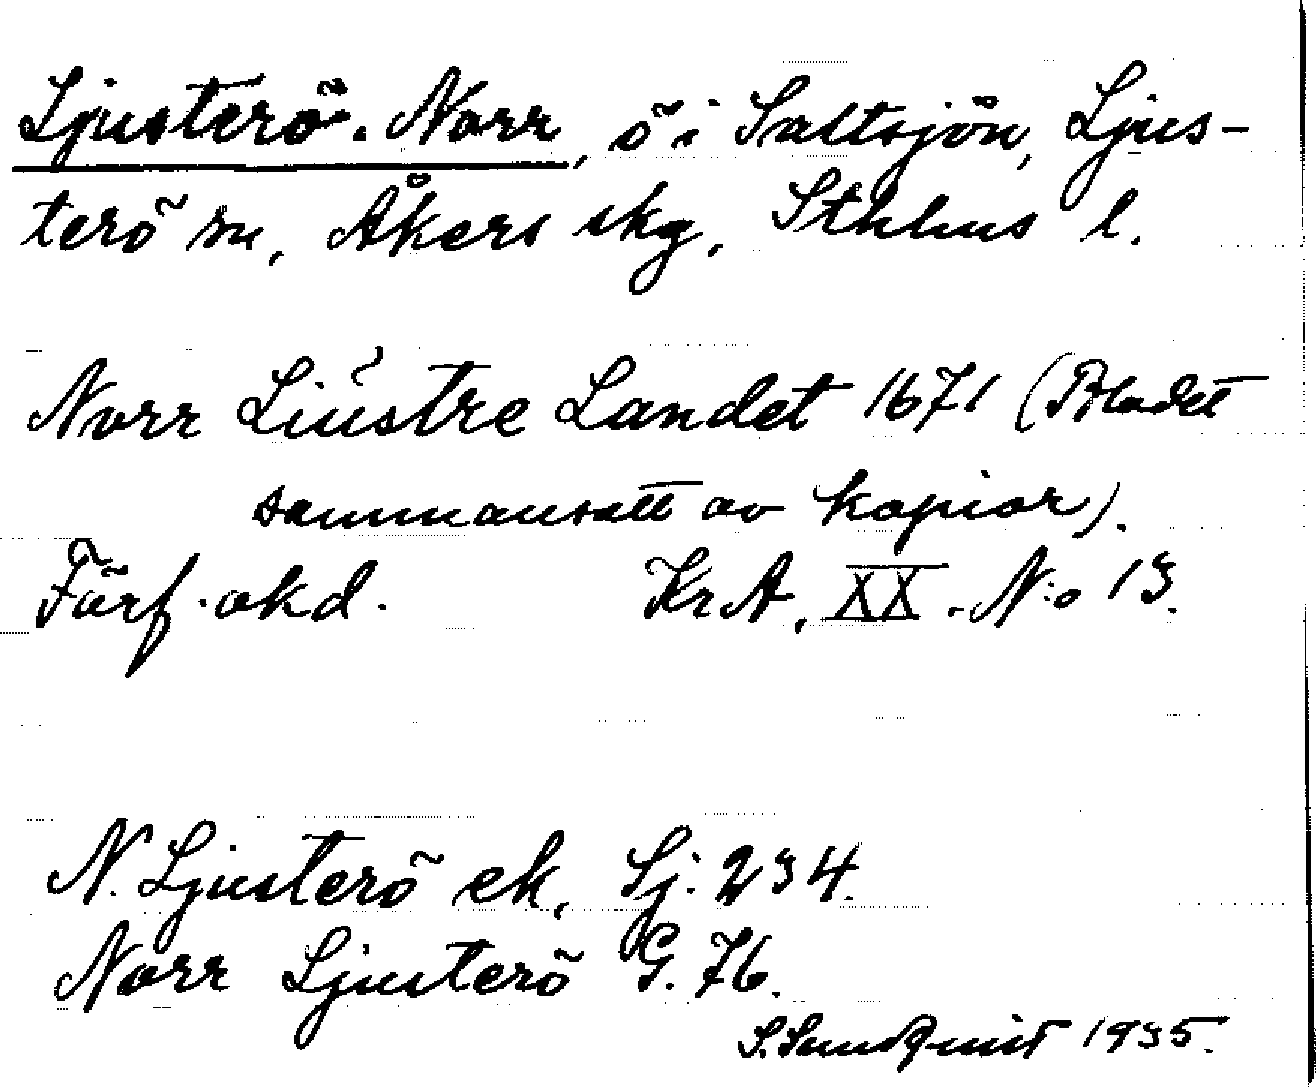 Ljusterö. Norr, ö i Saltsjön, Ljus-
terö sn, Åkers skg, Sthlms l.
Norr Liústre Landet 1671 (Bladet
sammansatt av kopior).
Förf. okd. KrA, XX. N:o 13.
N. Ljusterö ek, Sj. 234.
Norr Ljusterö G. 76.
S. Sundquist 1935.